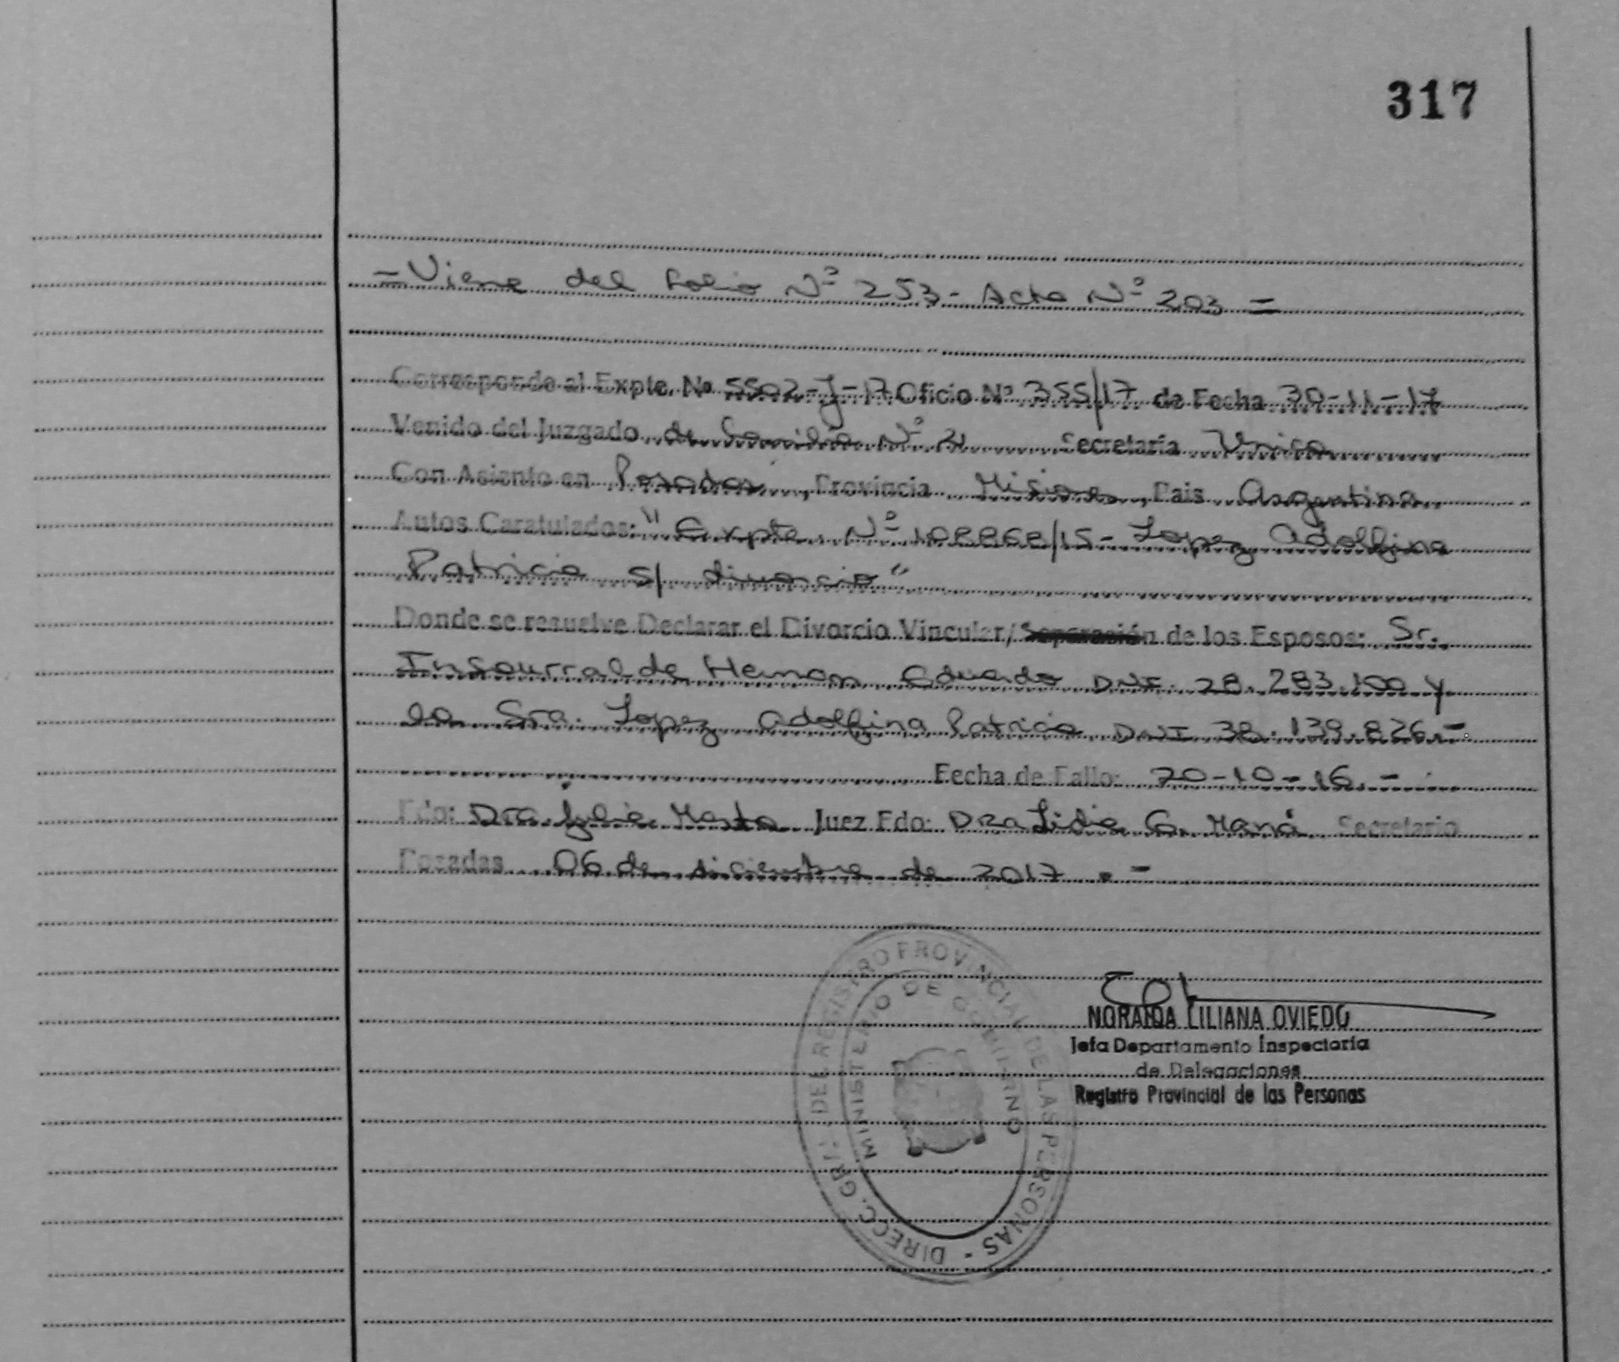 317
=Viene del Folio Nº 253- Acta Nº 203=
Corresponde al Expte. Nº 5502-J-17 Oficio Nº 355/17 de Fecha 30-11-17
Venido del Juzgado de Familia Nº 2 Secretaría Unica
Con Asiento en Posadas, Provincia Misiones, Pais Argentina
Autos Caratulados: "Expte. Nº 108868/15- Lopez Adolfina
Patricia s/ divorcio"
Donde se resuelve Declarar el Divorcio Vincular/Separación de los Esposos: Sr.
Insaurralde Hernan Eduardo DNI 28.283.100 y
la Sra. Lopez Adolfina Patricia DNI 38.139.826.-
Fecha de Fallo: 20-10-16.-
Fdo: Dra. Julia Juez Fdo: Dra Lidia G. Maná Secretario
Posadas 06 de diciembre de 2017.-
DIRECC. GRAL. DEL REGISTRO PROVINCIAL DE LAS PERSONAS -
MINISTERIO DE GOBIERNO
NORAIDA LILIANA OVIEDO
Jefa Departamento Inspectoría
de Delegaciones
Registro Provincial de las Personas